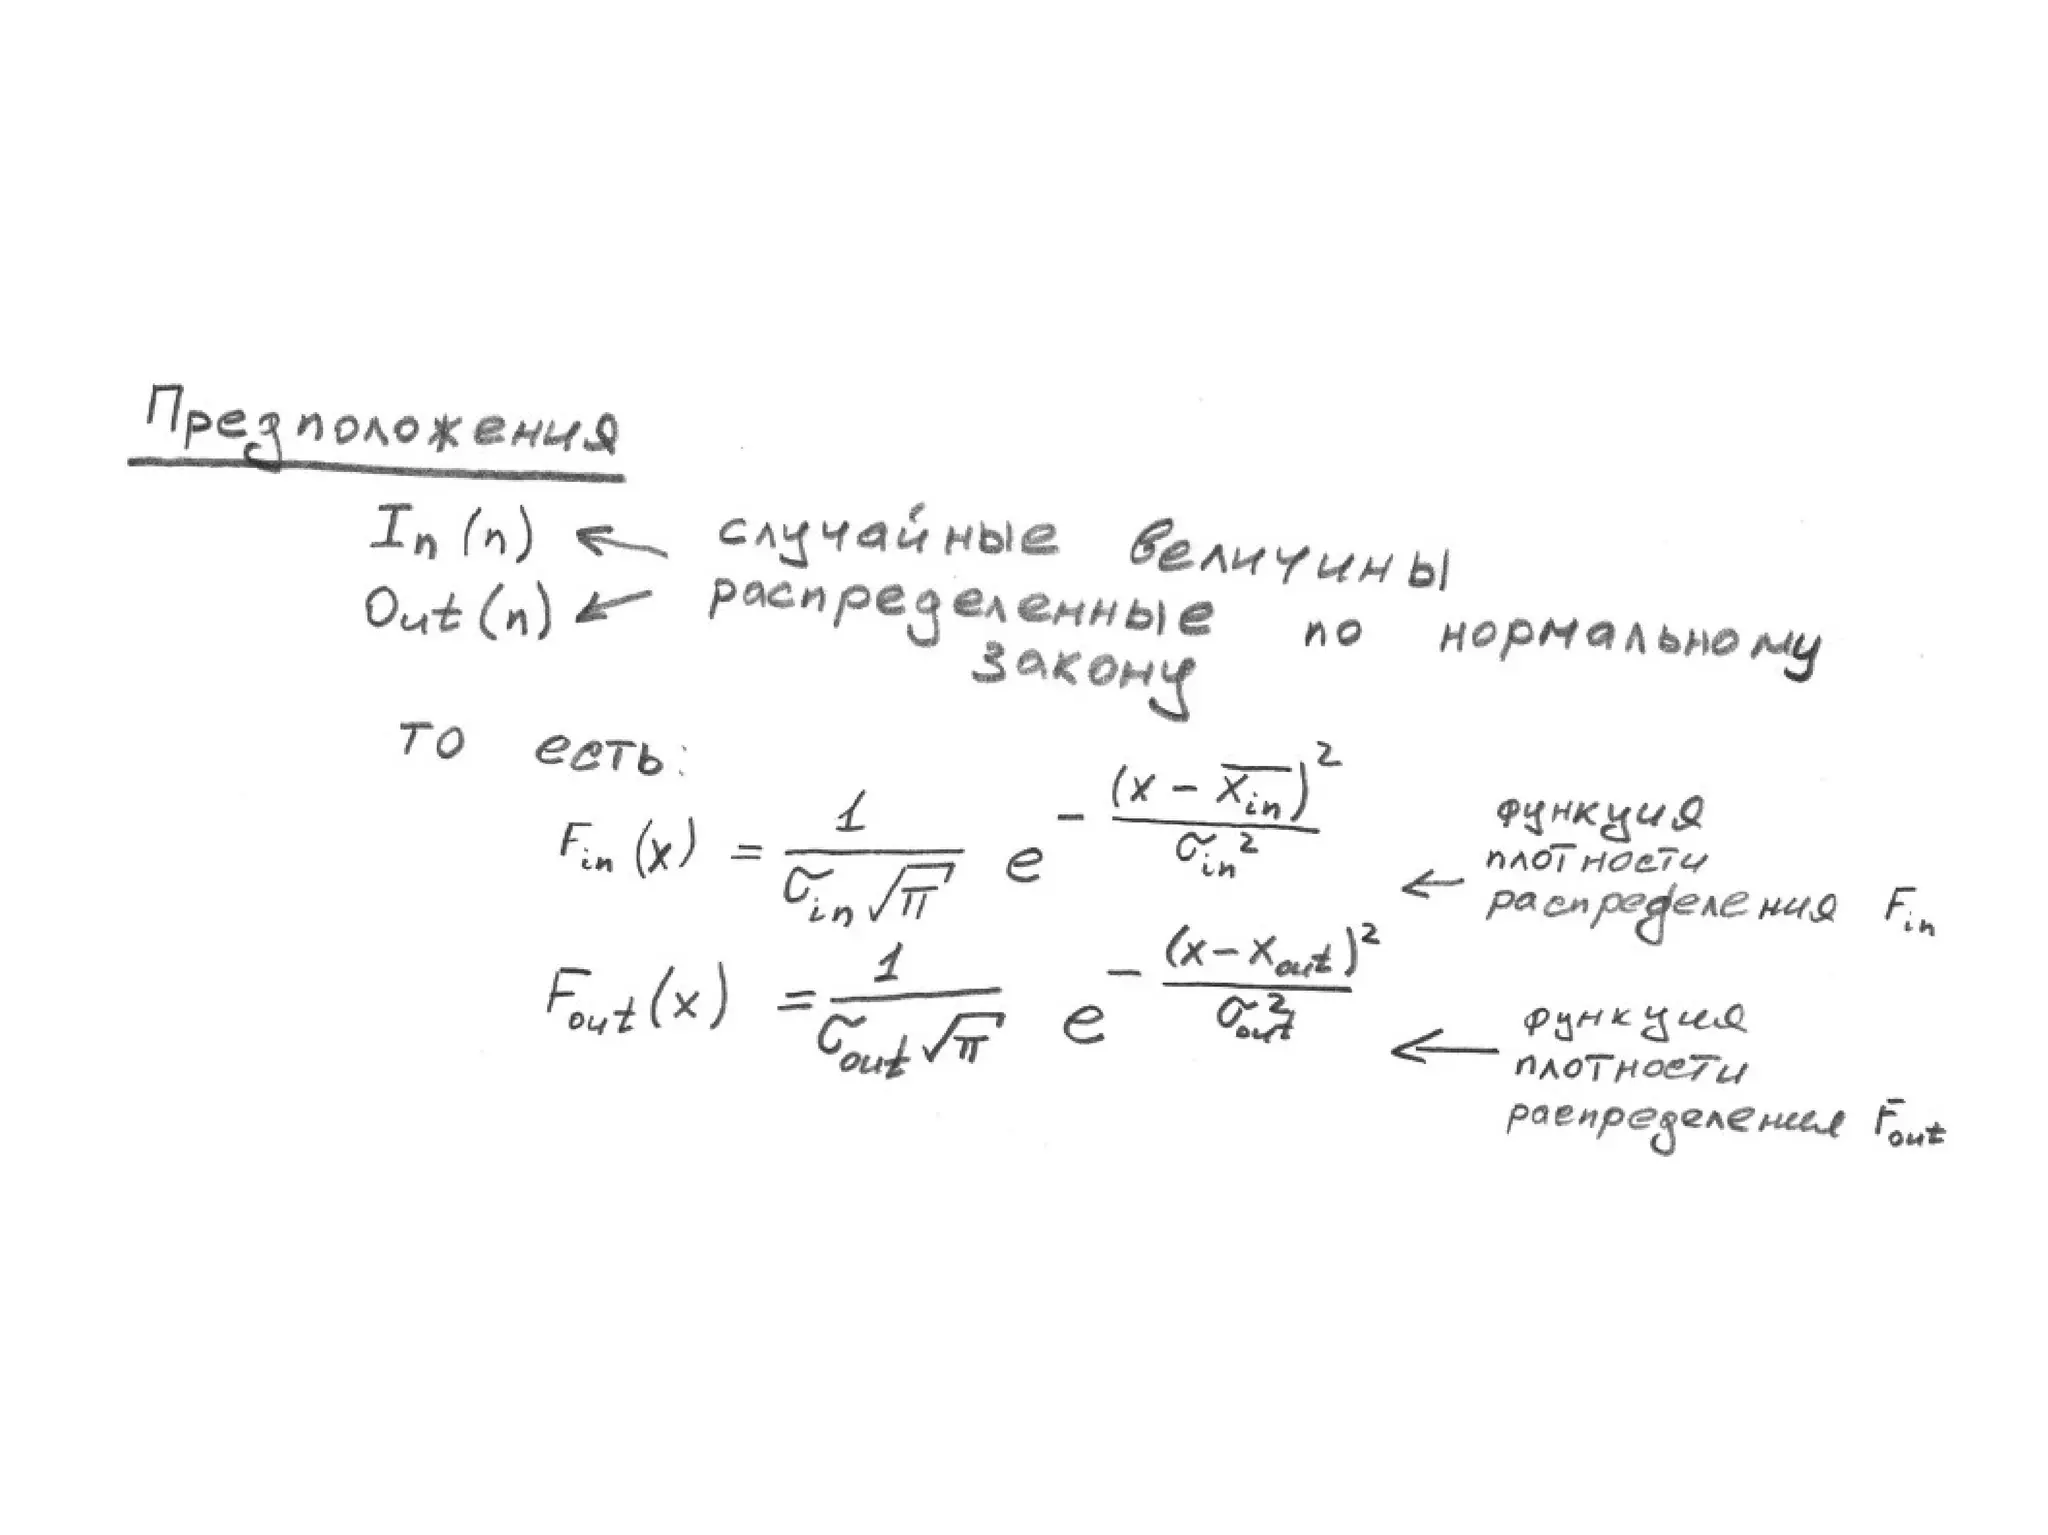 Предположения
In(n) ← случайные величины
Out(n) ← распределенные по нормальному
закону
то есть:
F_in(x) = 1/(σ_in√π) e^(-(x - x̅_in)²/σ_in²) ← функция
плотности
распределения F_in
F_out(x) = 1/(σ_out√π) e^(-(x-x_out)²/σ_out²) ← функция
плотности
распределения F_out